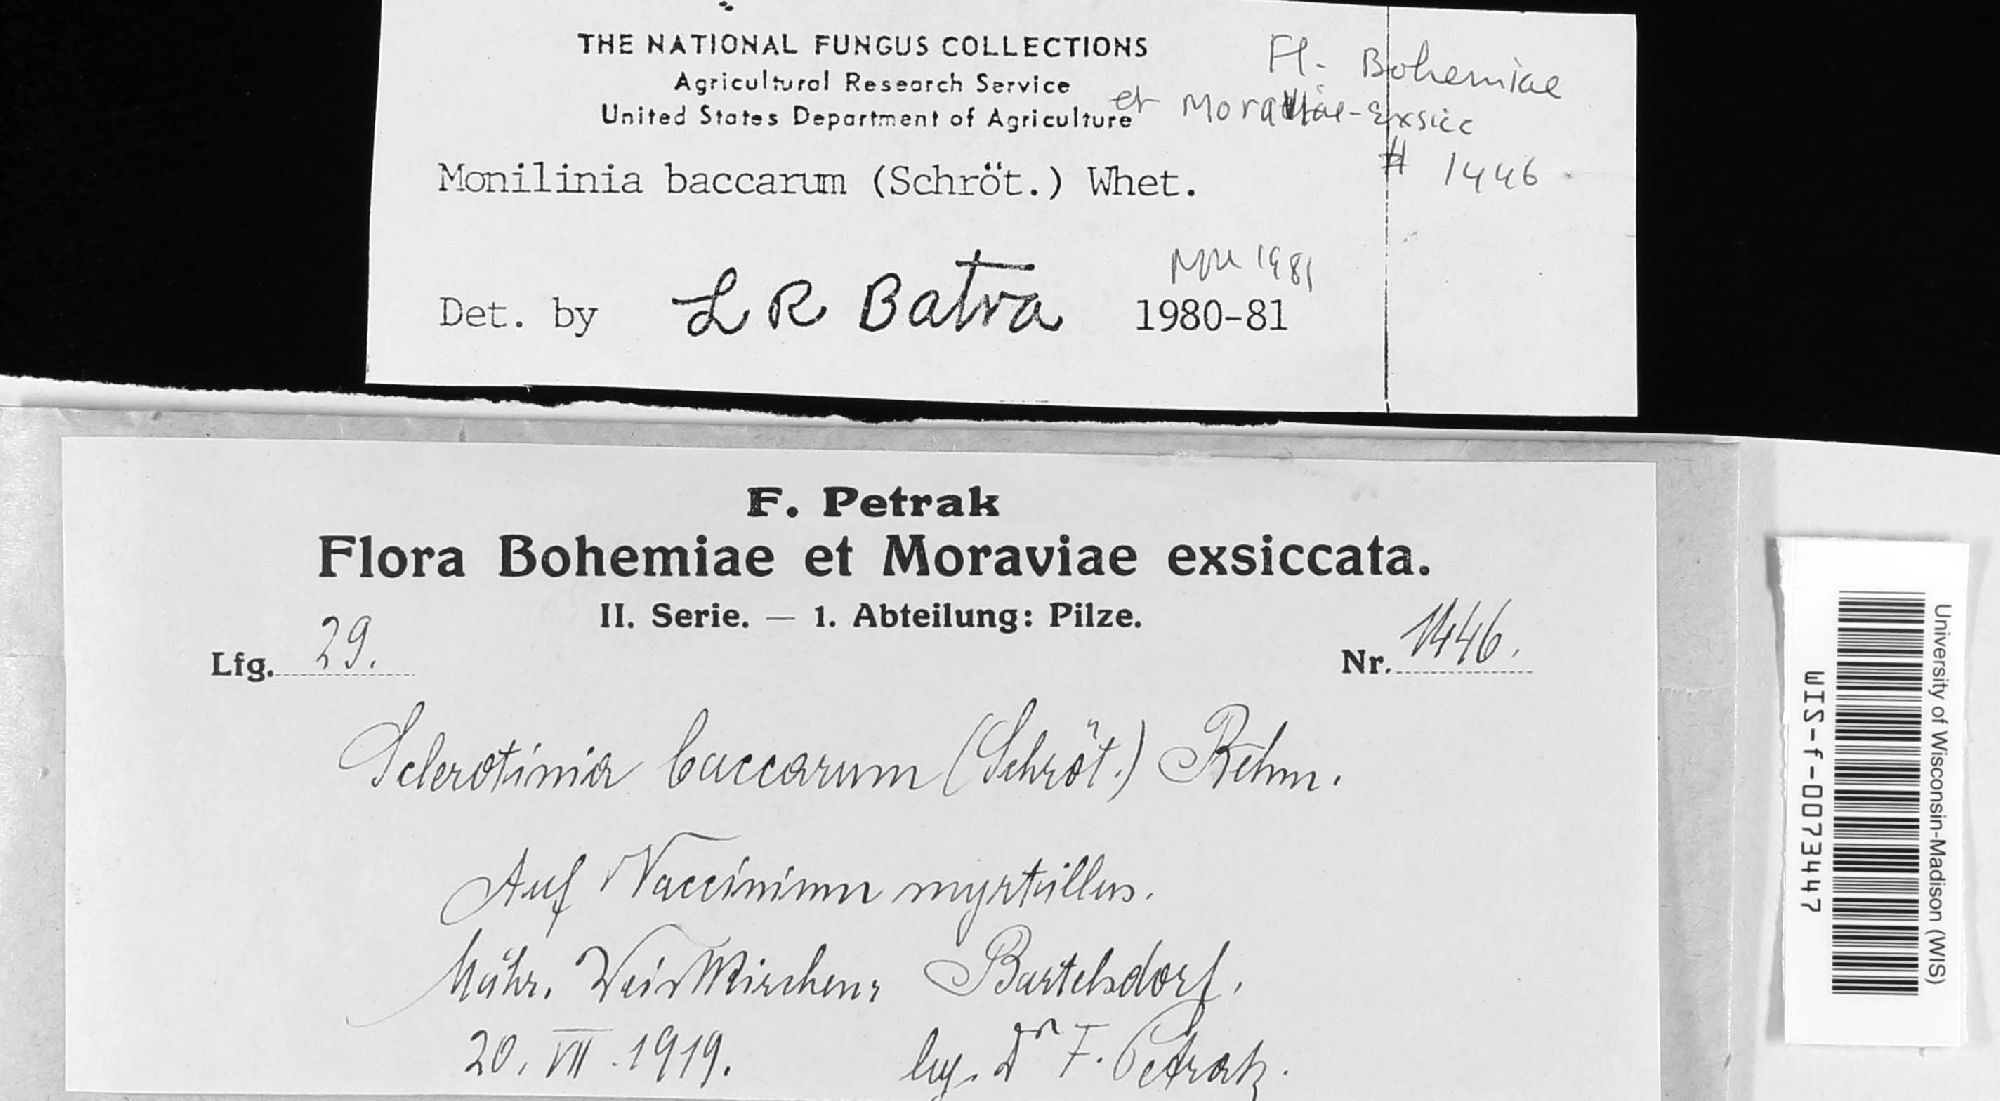 THE NATIONAL FUNGUS COLLECTIONS
Agricultural Research Service
United States Department of Agriculture
Fl. Bohemiae
et Moraviae-Exsicc
# 1446
Monilinia baccarum (Schröt.) Whet.
1981
Det. by L R Batra 1980-81
F. Petrak
Flora Bohemiae et Moraviae exsiccata.
II. Serie. — 1. Abteilung: Pilze.
Lfg. 29.
Nr. 1446.
Sclerotinia baccarum (Schröt.) Rehm.
Auf Vaccinium myrtillus.
Mähr. Weisskirchen, Bartelsdorf.
20. VII. 1919. lg. Dr F. Petrak.
University of Wisconsin-Madison (WIS)
WIS-f-0073447